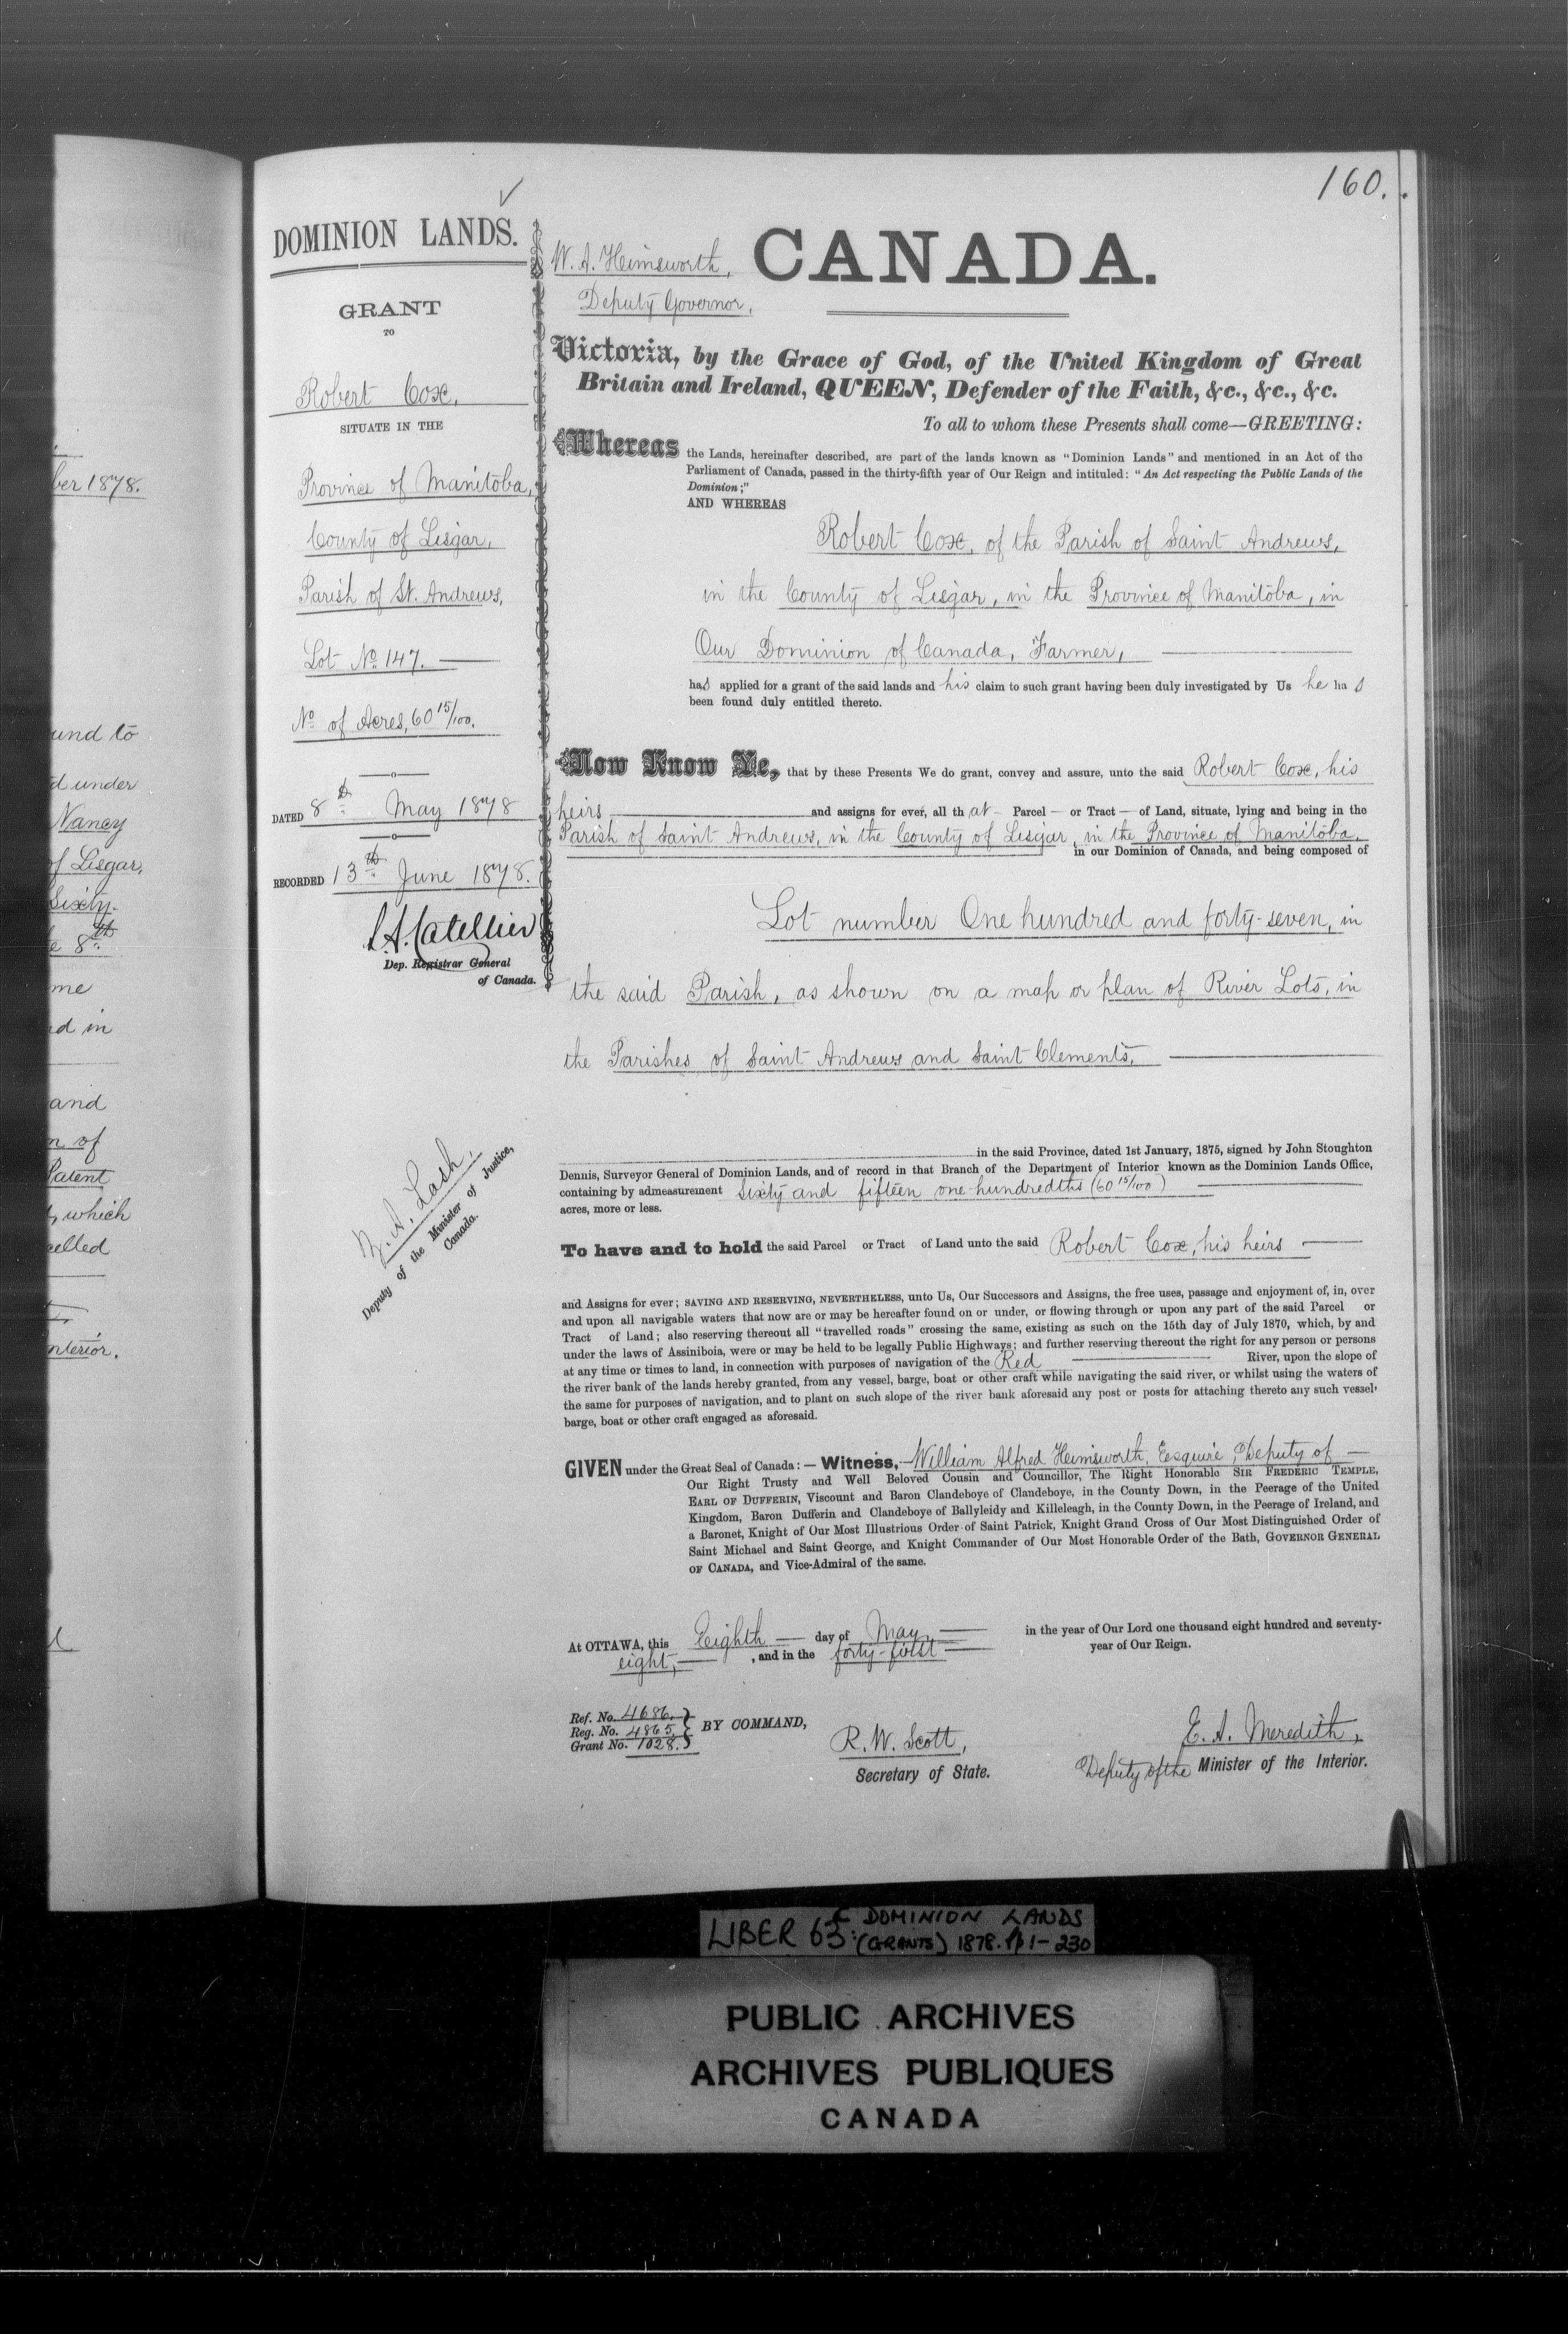 ber 1878.
und to
d under
Nancy
of Lisgar,
Sixty-
e 8th
me
d in
and
n of
Patent
which
celled
nterior.
160.
DOMINION LANDS.
GRANT
TO
Robert Cox,
SITUATE IN THE
Province of Manitoba,
County of Lisgar,
Parish of St. Andrews,
Lot No. 147.
No. of Acres, 60 15/100.
DATED 8th May 1878
RECORDED 13th June 1878.
L.A. Catellier
Dep. Registrar General
of Canada.
Z. A. Lash,
Deputy of the Minister of Justice,
Canada.
W. A. Himsworth,
Deputy Governor.
CANADA.
Victoria, by the Grace of God, of the United Kingdom of Great
Britain and Ireland, QUEEN, Defender of the Faith, &c., &c., &c.
To all to whom these Presents shall come—GREETING:
Whereas the Lands, hereinafter described, are part of the lands known as "Dominion Lands" and mentioned in an Act of the
Parliament of Canada, passed in the thirty-fifth year of Our Reign and intituled: "An Act respecting the Public Lands of the
Dominion;"
AND WHEREAS
Robert Cox, of the Parish of Saint Andrews,
in the County of Lisgar, in the Province of Manitoba, in
Our Dominion of Canada, Farmer,
has applied for a grant of the said lands and his claim to such grant having been duly investigated by Us he has
been found duly entitled thereto.
Now Know Ye, that by these Presents We do grant, convey and assure, unto the said Robert Cox, his
heirs and assigns for ever, all that Parcel — or Tract — of Land, situate, lying and being in the
Parish of Saint Andrews, in the County of Lisgar, in the Province of Manitoba,
in our Dominion of Canada, and being composed of
Lot number One hundred and forty-seven, in
the said Parish, as shown on a map or plan of River Lots, in
the Parishes of Saint Andrews and Saint Clements,
in the said Province, dated 1st January, 1875, signed by John Stoughton
Dennis, Surveyor General of Dominion Lands, and of record in that Branch of the Department of Interior known as the Dominion Lands Office,
containing by admeasurement Sixty and fifteen one-hundredths (60 15/100)
acres, more or less.
To have and to hold the said Parcel or Tract of Land unto the said Robert Cox, his heirs
and Assigns for ever; SAVING AND RESERVING, NEVERTHELESS, unto Us, Our Successors and Assigns, the free uses, passage and enjoyment of, in, over
and upon all navigable waters that now are or may be hereafter found on or under, or flowing through or upon any part of the said Parcel or
Tract of Land; also reserving thereout all "travelled roads" crossing the same, existing as such on the 15th day of July 1870, which, by and
under the laws of Assiniboia, were or may be held to be legally Public Highways; and further reserving thereout the right for any person or persons
at any time or times to land, in connection with purposes of navigation of the Red River, upon the slope of
the river bank of the lands hereby granted, from any vessel, barge, boat or other craft while navigating the said river, or whilst using the waters of
the same for purposes of navigation, and to plant on such slope of the river bank aforesaid any post or posts for attaching thereto any such vessel,
barge, boat or other craft engaged as aforesaid.
GIVEN under the Great Seal of Canada: — Witness, William Alfred Himsworth, Esquire, Deputy of —
Our Right Trusty and Well Beloved Cousin and Councillor, The Right Honorable SIR FREDERIC TEMPLE,
EARL OF DUFFERIN, Viscount and Baron Clandeboye of Clandeboye, in the County Down, in the Peerage of the United
Kingdom, Baron Dufferin and Clandeboye of Ballyleidy and Killeleagh, in the County Down, in the Peerage of Ireland, and
a Baronet, Knight of Our Most Illustrious Order of Saint Patrick, Knight Grand Cross of Our Most Distinguished Order of
Saint Michael and Saint George, and Knight Commander of Our Most Honorable Order of the Bath, GOVERNOR GENERAL
OF CANADA, and Vice-Admiral of the same.
At OTTAWA, this Eighth — day of May, — in the year of Our Lord one thousand eight hundred and seventy-
eight, — , and in the forty-first year of Our Reign.
Ref. No. 4686.
Reg. No. 4865.
Grant No. 1028.
BY COMMAND,
R. W. Scott,
Secretary of State.
E. A. Meredith,
Deputy of the Minister of the Interior.
LIBER 63: DOMINION LANDS
(GRANTS) 1878. pp 1-230
PUBLIC ARCHIVES
ARCHIVES PUBLIQUES
CANADA